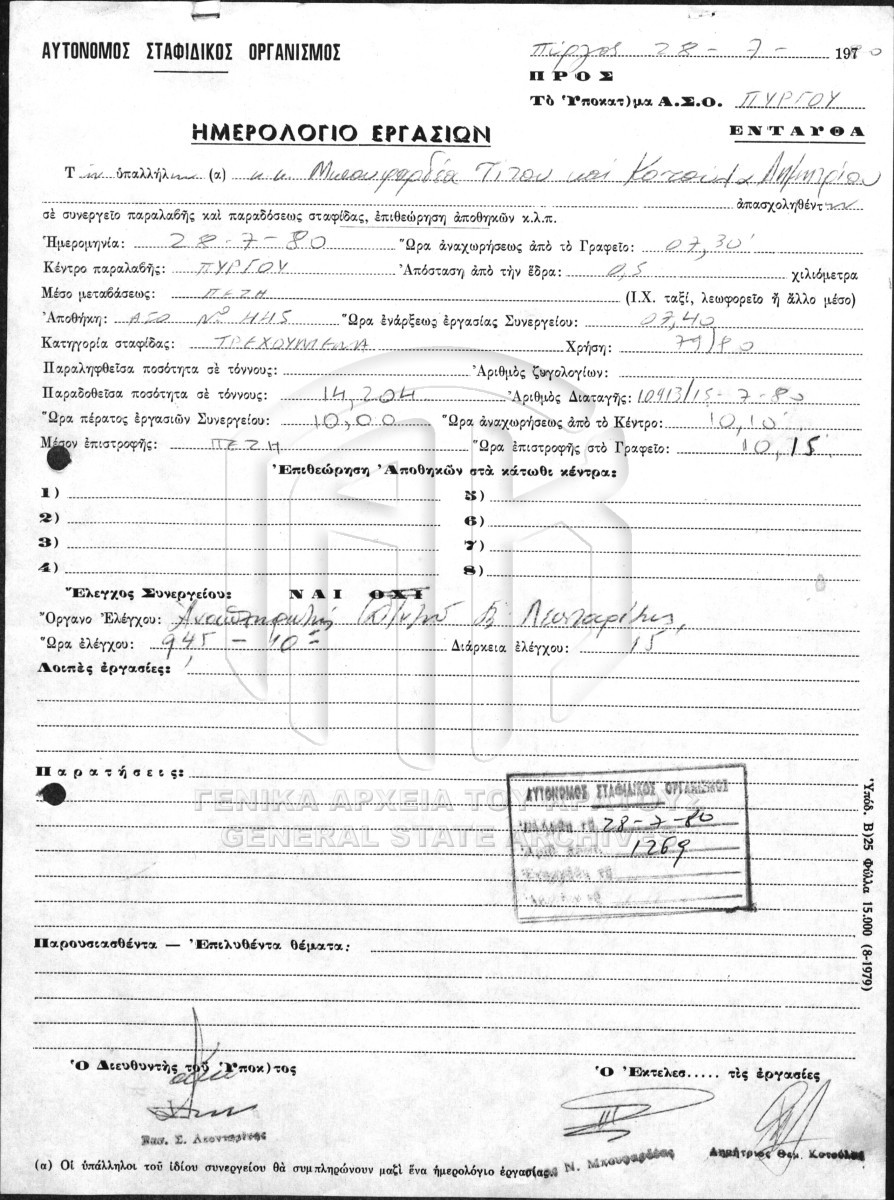 ΑΥΤΟΝΟΜΟΣ ΣΤΑΦΙΔΙΚΟΣ ΟΡΓΑΝΙΣΜΟΣ
Πύργος 28-7-1980
ΠΡΟΣ
Τὸ Ὑποκατ)μα Α.Σ.Ο. ΠΥΡΓΟΥ
ΗΜΕΡΟΛΟΓΙΟ ΕΡΓΑΣΙΩΝ
ΕΝΤΑΥΘΑ
Τῶν ὑπαλλήλων (α) κ.κ. Μπουφαρδέα Τίτου καί Κοτσύλα Δημητρίου
ἀπασχοληθέντων
σὲ συνεργεῖο παραλαβῆς καὶ παραδόσεως σταφίδας, ἐπιθεώρηση ἀποθηκῶν κ.λ.π.
Ἡμερομηνία: 28-7-80 Ὥρα ἀναχωρήσεως ἀπὸ τὸ Γραφεῖο: 07,30'
Κέντρο παραλαβῆς: ΠΥΡΓΟΥ Ἀπόσταση ἀπὸ τὴν ἕδρα: 0,5 χιλιόμετρα
Μέσο μεταβάσεως: ΠΕΖΗ (Ι.Χ. ταξί, λεωφορεῖο ἢ ἄλλο μέσο)
Ἀποθήκη: ΑΣΟ Νο 445 Ὥρα ἐνάρξεως ἐργασίας Συνεργείου: 07,40
Κατηγορία σταφίδας: ΤΡΕΧΟΥΜΕΝΑ Χρήση: 79/80
Παραληφθεῖσα ποσότητα σὲ τόννους: Ἀριθμὸς ζυγολογίων:
Παραδοθεῖσα ποσότητα σὲ τόννους: 14,204 Ἀριθμὸς Διαταγῆς: 10913/15-7-80
Ὥρα πέρατος ἐργασιῶν Συνεργείου: 10,00 Ὥρα ἀναχωρήσεως ἀπὸ τὸ Κέντρο: 10,10'
Μέσον ἐπιστροφῆς: ΠΕΖΗ Ὥρα ἐπιστροφῆς στὸ Γραφεῖο: 10,15'
Ἐπιθεώρηση Ἀποθηκῶν στὰ κάτωθι κέντρα:
1) 5)
2) 6)
3) 7)
4) 8)
Ἔλεγχος Συνεργείου: ΝΑΙ ΟΧΙ
Ὄργανο Ἐλέγχου: Ἀναπληρωτής
Ὥρα ἐλέγχου: 945 - 10 Διάρκεια ἐλέγχου: 15
Λοιπὲς ἐργασίες:
Παρατήσεις:
ΓΕΝΙΚΑ ΑΡΧΕΙΑ ΤΟΥ ΚΡΑΤΟΥΣ
GENERAL STATE ARCHIVES
ΑΥΤΟΝΟΜΟΣ ΣΤΑΦΙΔΙΚΟΣ ΟΡΓΑΝΙΣΜΟΣ
28-7-80
1269
Ὑπόδ. Β)25 Φύλλα 15.000 (8-1979)
Παρουσιασθέντα — Ἐπιλυθέντα θέματα:
Ὁ Διευθυντὴς τοῦ Ὑποκ)τος
Ὁ Ἐκτελεσ..... τὶς ἐργασίες
Ν. Μπουφαρδέας
Δημήτριος Θεμ. Κοτσύλας
(α) Οἱ ὑπάλληλοι τοῦ ἰδίου συνεργείου θὰ συμπληρώνουν μαζὶ ἕνα ἡμερολόγιο ἐργασίας.